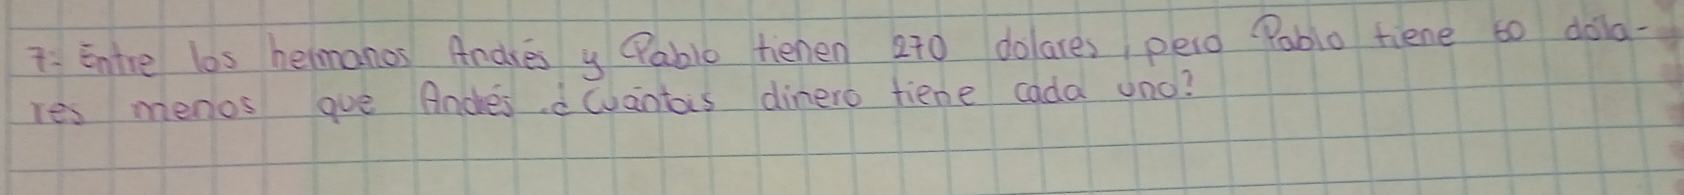 7: Entre los hermanos Andrés y Pablo tienen 270 dolares, pero Pablo tiene 50 dóla-
res menos que Andrés. ¿Cuántas dinero tiene cada uno?